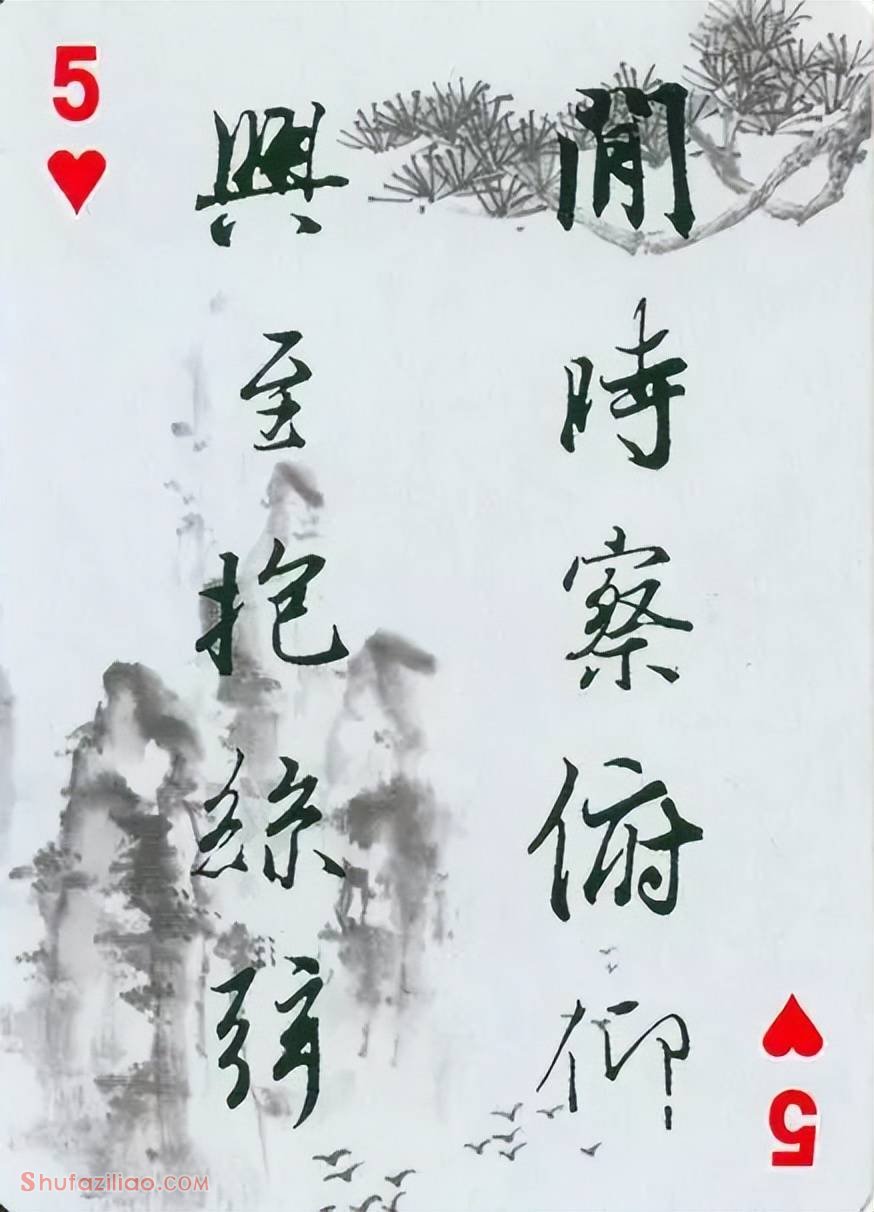 5
閒時察俯仰
興至抱絲弦
5
Shufaziliao.COM